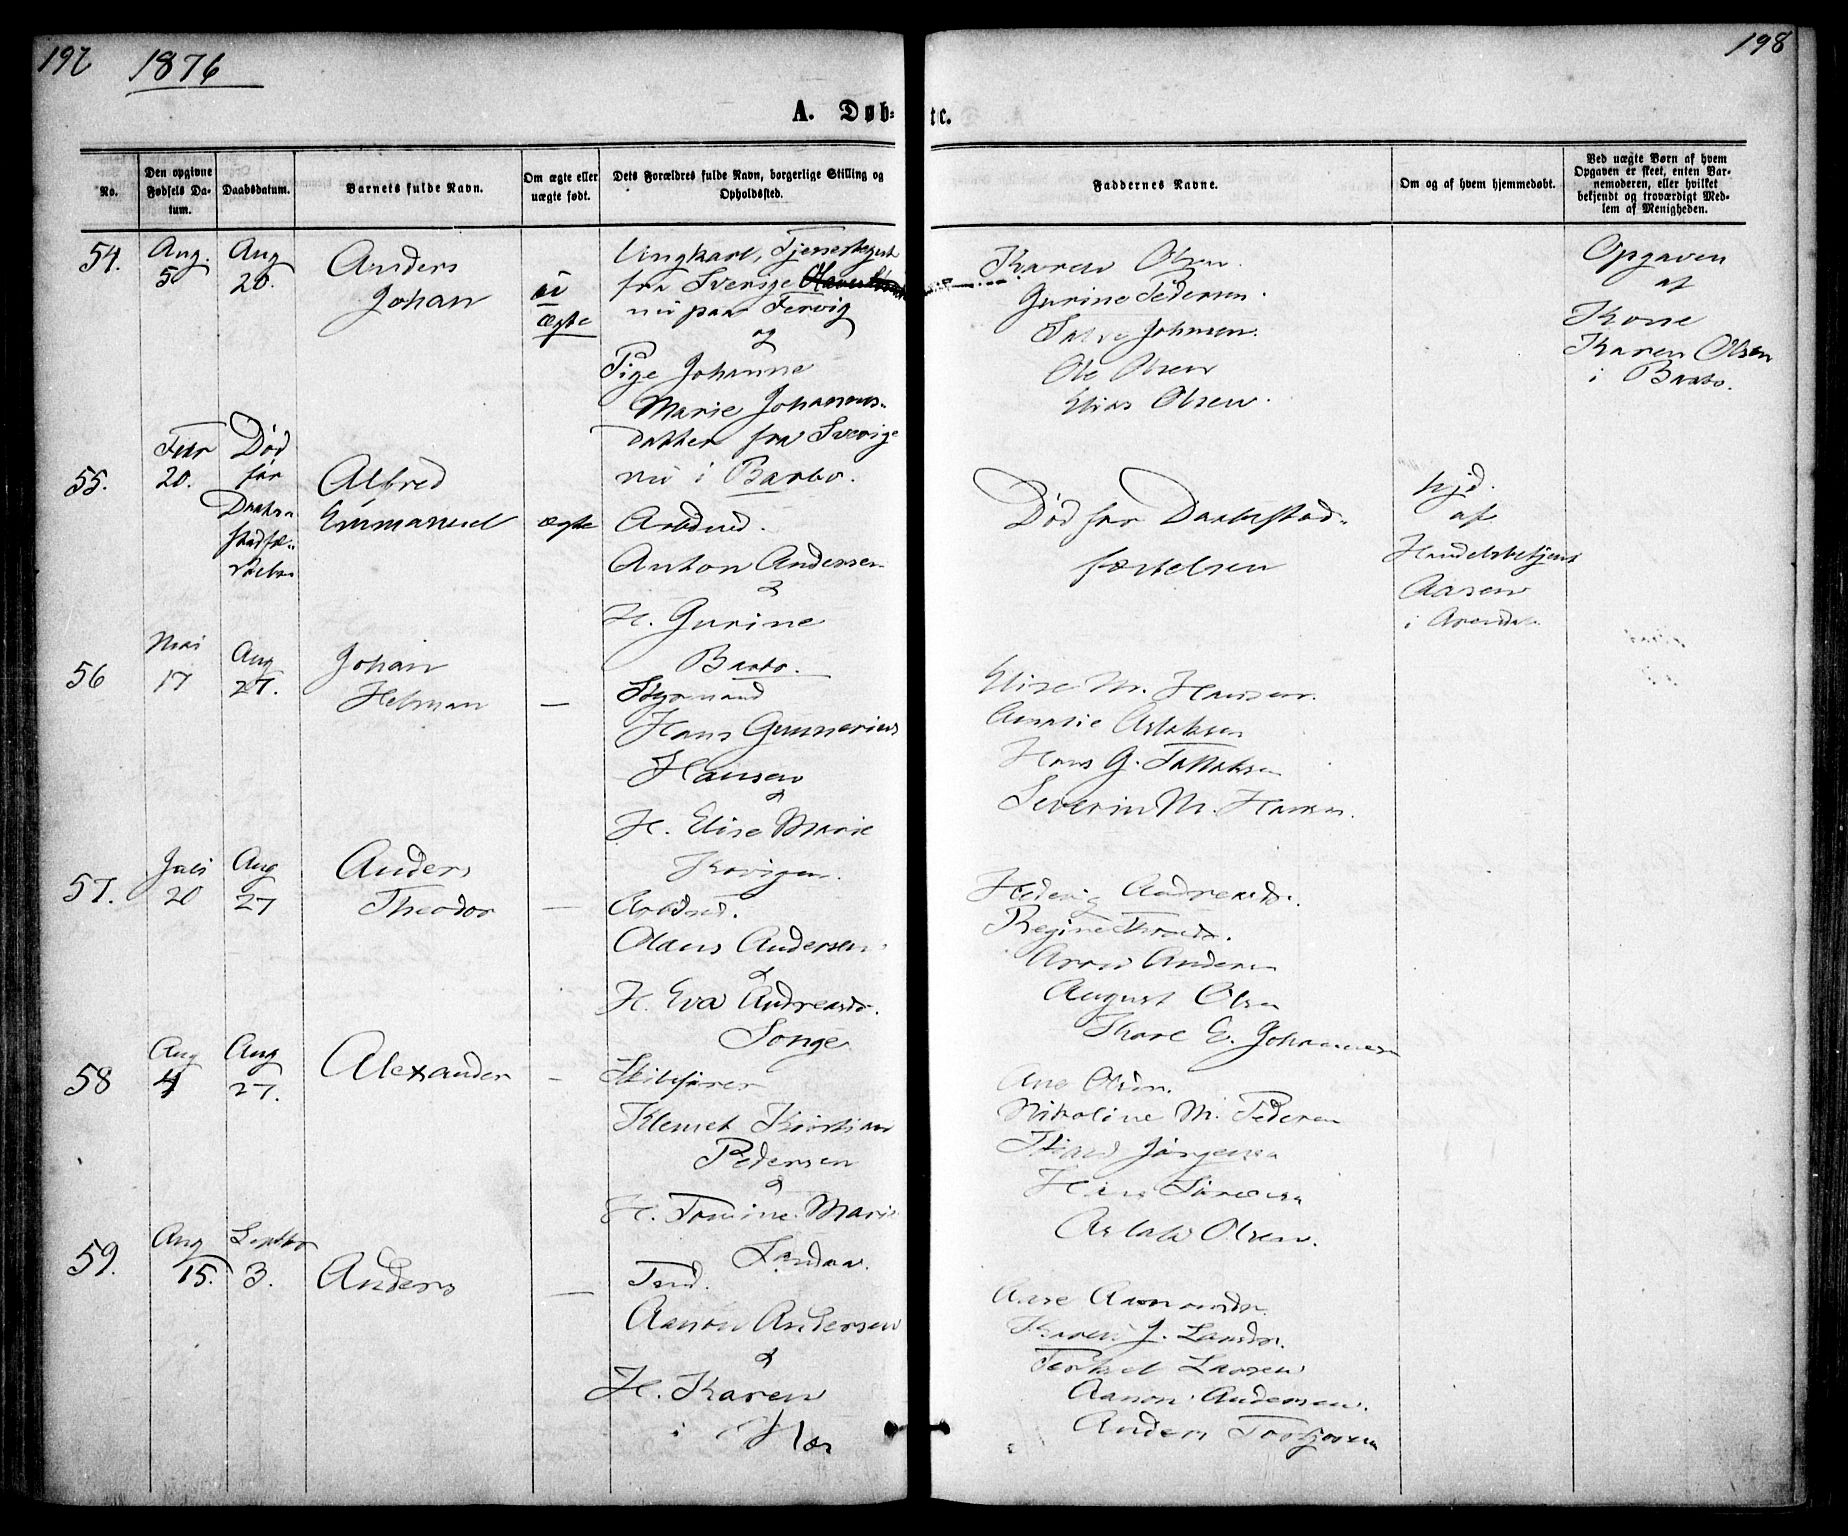 197 1876
198
A. Døb-
te.
No.
Den opgivne Fødsels Da-tum.
Daabsdatum.
Barnets fulde Navn.
Om ægte eller uægte født.
Dets Forældres fulde Navn, borgerlige Stilling og Opholdssted.
Faddernes Navne.
Om og af hvem hjemmedøbt.
Ved uægte Børn af hvem Opgaven er skeet, enten Bar-nemoderen, eller hvilket bekjendt og troværdigt Med-lem af Menigheden.
54.
Aug. 5
Aug 20.
Anders
Johan
u
ægte
Ungkarl,
fra Sverige
nu paa
og
Pige Johanne
Marie Johannes-
datter fra Sverige
nu i Barbo.
Karen Olsen.
Gurine Pedersen.
Johnsen.
Ole Olsen
Elias Olsen.
Opgaven
af
Kone
Karen Olsen
i Barbo.
55.
Febr 20.
Død
før
Alfred
Emmanuel
ægte
Arbmd.
Anton Andersen
&
H. Gurine
Barbo.
Død før Daabsstad-
fæstelsen
hjd.
af
Handelsbetjent
Aasen
i Arendal.
56
Mai 17
Aug 27.
Johan
Helman
—
Styrmand
Hans Gunnerius
Hansen
&
H. Elise Marie
Elise M. Hansen.
Amalie Aslaksen
Hans G.
Severin M. Hansen.
57.
Juli 20
Aug 27
Anders
Theodor
—
Arbmd.
Olaus Andersen
&
H. Eva Andreasdr.
Songe
Hedvig Andreasdr.
Regine
Andersen
August Olsen
Karl E. Johannesen
58
Aug 4
Aug 27.
Alexander
—
Skibsfører
Klemet Kristian
Pedersen
&
H. Tomine Marie
Ane Olsen.
Nikoline M. Pedersen
Jørgensen
Aslak Olsen.
59.
Aug 15.
Septbr 3.
Anders
—
Aanon Andersen
&
H. Karen
i
Karen J. Larsdr.
Terkel Larsen
Aanon Andersen.
Anders